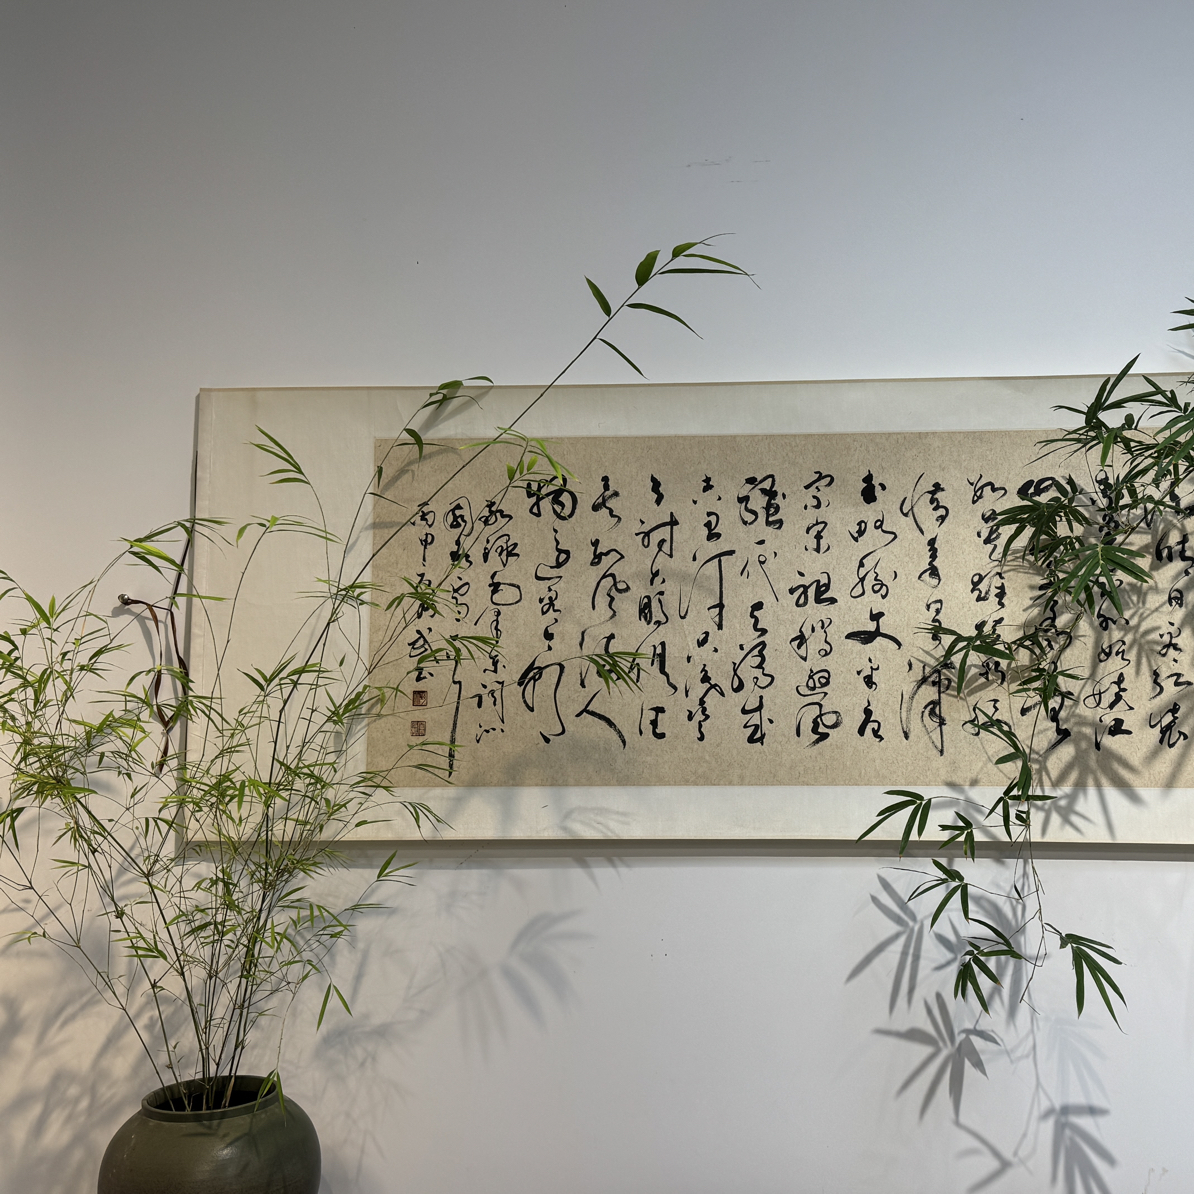 晴日看红装
素裹分外妖娆江
數英雄競折腰
惜秦皇漢
武略輸文采唐
宗宋祖稍遜風
騷一代天驕成
吉思汗只識彎
弓射大雕俱往
矣數風流人
物還看今朝
敬録毛澤東詞沁
園春雪
丙申